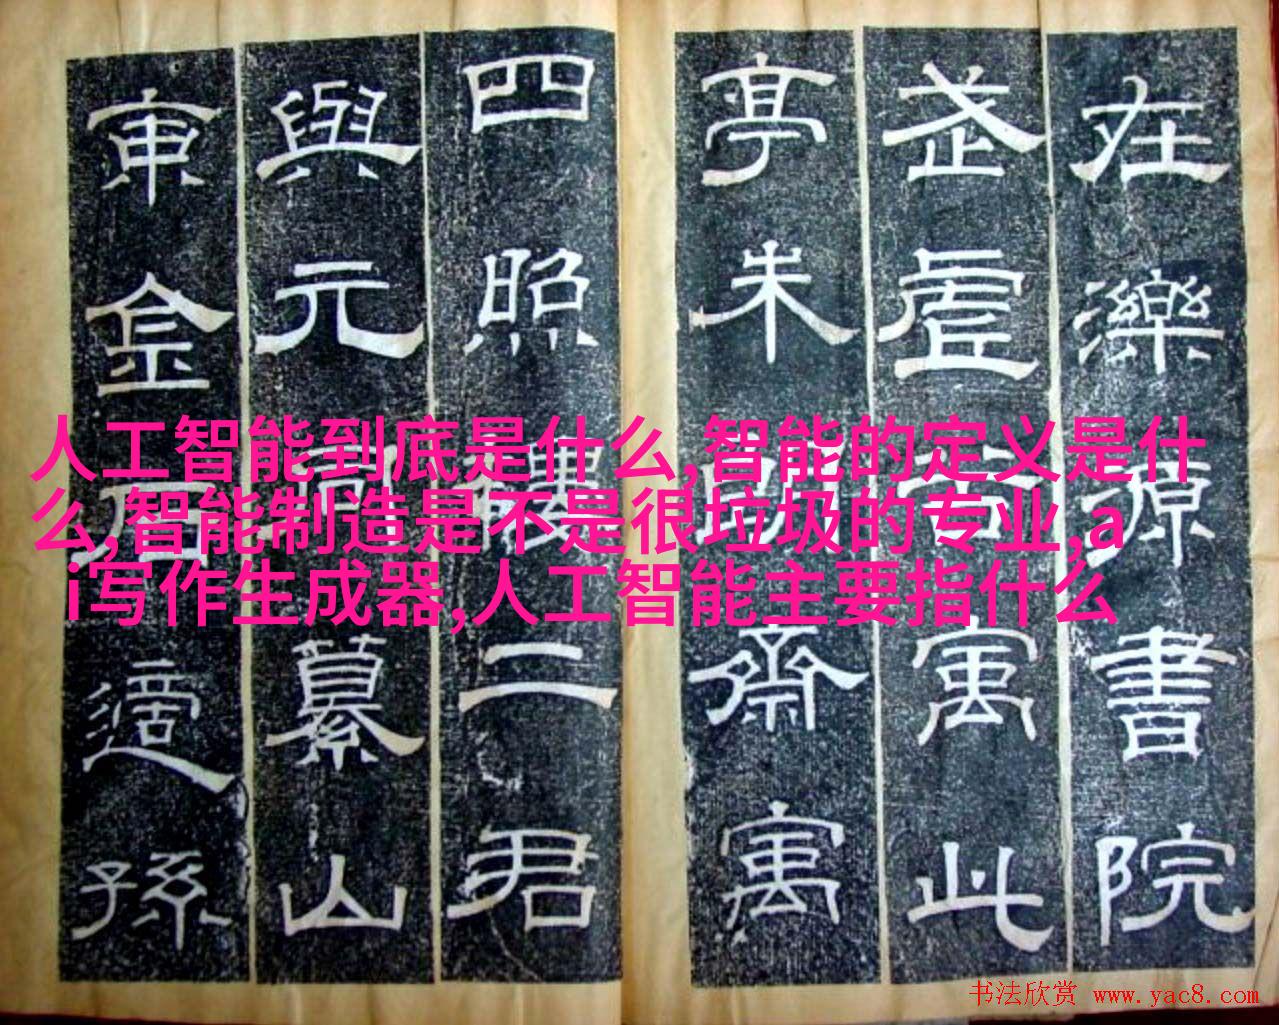 在濼源書院
武虛谷寓此
亭朱朗齋寓
四照樓二君
與元同纂山
東金石適孫
人工智能到底是什么,智能的定义是什
么,智能制造是不是很垃圾的专业,a
i写作生成器,人工智能主要指什么
书法欣赏 www.yac8.com